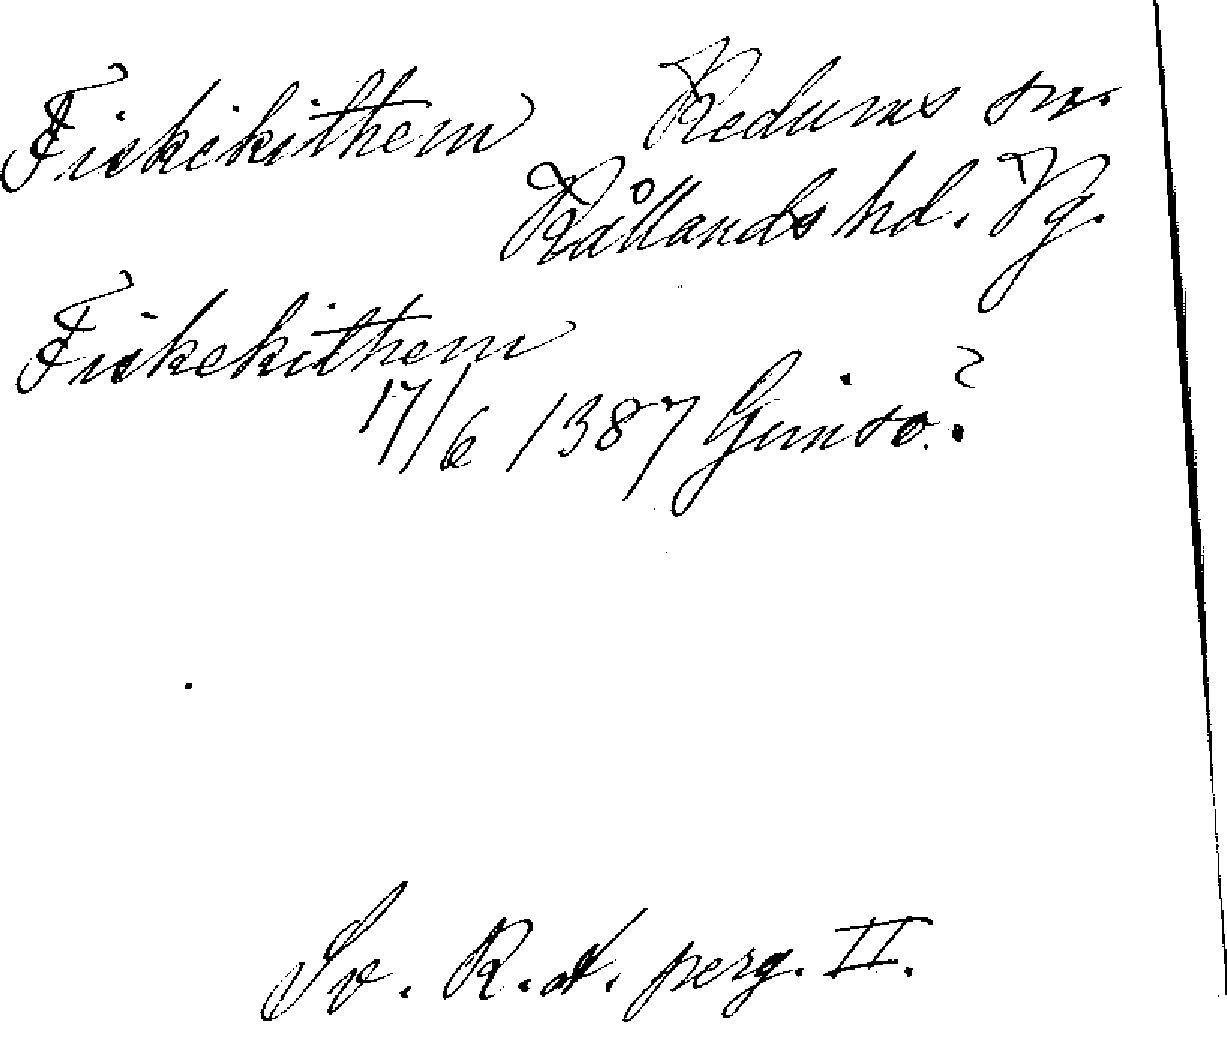 Fiskekithem Redums sn.
Kållands hd. Vg.
Fiskekithem
17/6 1387 Gunso.?
Sv. R. A. perg. II.